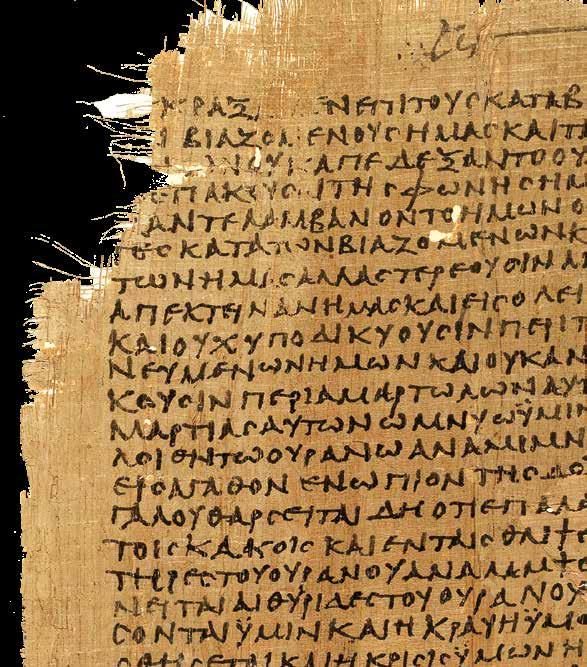 ΚΡΑΞ ΝΕΠΙΤΟΥϹΚΑΤΑΒ
Ι ΒΙΑΖΟΜΕΝΟΥϹΗΜΑϹΚΑΙΤ
ΟΥΚΑΠΕΔΕΞΑΝΤΟΟΥ
ΕΠΑΚΟΥϹ ΙΤΗϹΦΩΝΗϹΗΜ
ΑΝΤΕΛΑΜΒΑΝΟΝΤΟΗΜΩΝΟ
ΤΕϹΚΑΤΑΤΩΝΒΙΑΖΟΜΕΝΩΝΚ
ΤΩΝΗΜΑϹΑΛΛΑϹΤΕΡΕΟΥϹΙΝΑ
ΑΠΕΚΤΕΙΝΑΝΗΜΑϹΚΑΙΕΙϹΟΛΕΙ
ΚΑΙΟΥΧΥΠΟΔΙΚΥΟΥϹΙΝΠΕΡΙΤ
ΝΕΥΜΕΝΩΝΗΜΩΝΚΑΙΟΥΚΑΝ
ΚΟΥϹΙΝΠΕΡΙΑΜΑΡΤΩΛΩΝΑΥ
ΜΑΡΤΙΑϹΑΥΤΩΝΩΜΝΥΩΫΜΙΝ
ΛΟΙΕΝΤΩΟΥΡΑΝΩΑΝΑΜΙΜΝ
ΕΙϹΑΓΑΘΟΝΕΝΩΠΙΟΝΤΗϹΔΟ
ΓΑΛΟΥΘΑΡϹΕΙΤΑΙΔΗΟΤΙΕΠΑΛ
ΤΟΙϹΚΑΚΟΙϹΚΑΙΕΝΤΑΙϹΘΛΙΨΕ
ΤΗΡΕϹΤΟΥΟΥΡΑΝΟΥΑΝΑΛΑΜΨΕ
ΝΕΙΤΑΙΑΙΘΥΡΙΔΕϹΤΟΥΟΥΡΑΝΟΥ
ϹΟΝΤΑΙΫΜΙΝΚΑΙΗΚΡΑΥΗΫΜΩ
ϹΘΗϹΕΤΑΙΚΑΙΗΚΡΙϹΙϹΫΜΩΝΗ